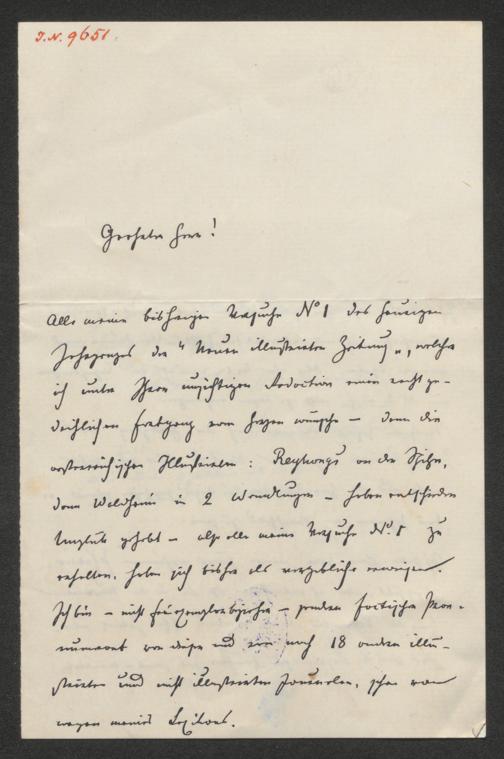 I.N. 9651.
Geehrter Herr!
Alle meine bisherigen Versuche No 1 des heurigen
Jahrganges der "Neuen illustrirten Zeitung", welcher
ich unter Ihrer umsichtigen Redaction einen recht ge-
deihlichen Fortgang vom Herzen wünsche – denn die
oesterreichischen Illustrirten: an der Spitze,
dann Waldheim in 2 Wandlungen – haben entschieden
Unglück gehabt – also alle meine Versuche No. 1 zu
erhalten, haben sich bisher als vergebliche erwiesen.
Ich bin – nicht – sondern factischer Pränu-
numerant von dieser und noch 18 anderen illu-
strirten und nicht illustrirten Journalen, schon von
wegen meines Lexikons.